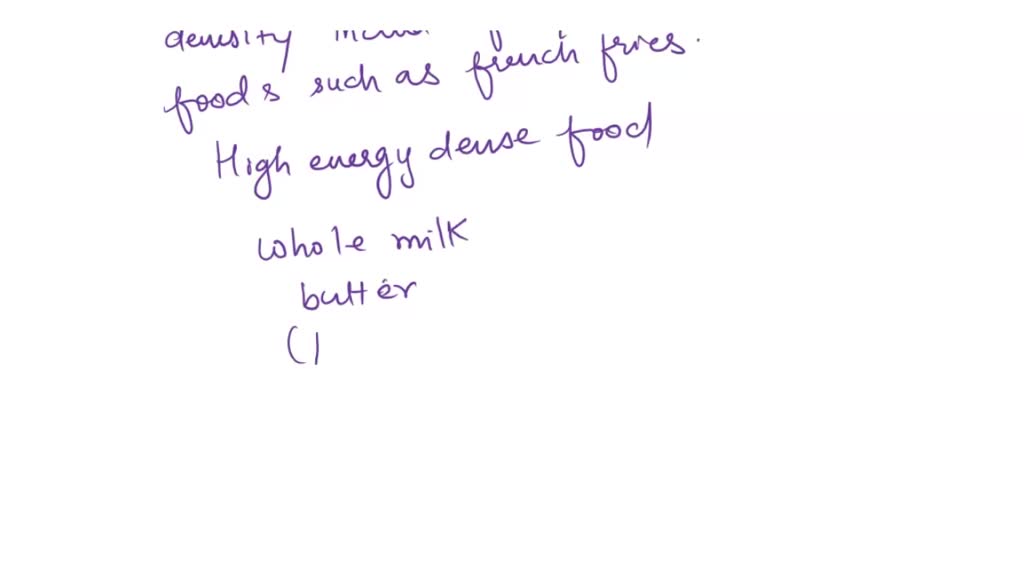 density
foods such as french fries.
High energy dense food
whole milk
butter
(